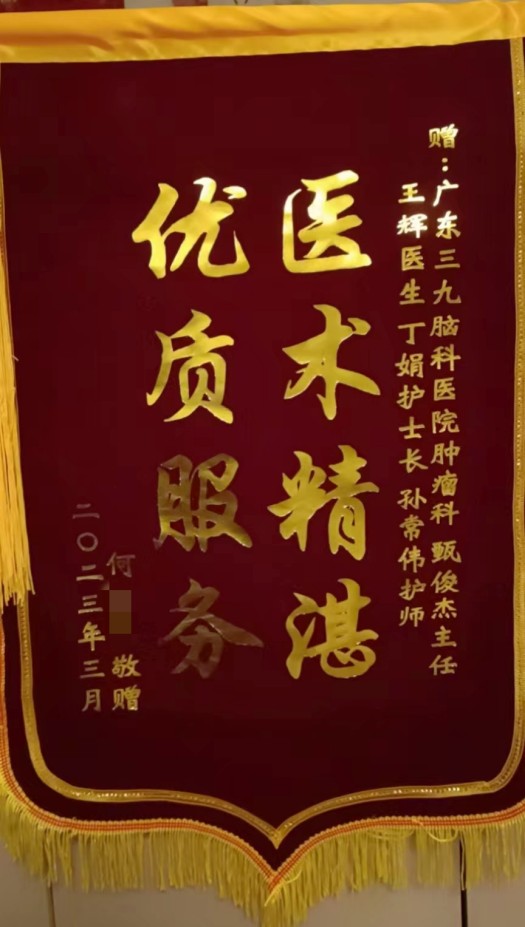 赠：广东三九脑科医院肿瘤科 甄俊杰主任
王辉医生 丁娟护士长 孙常伟护师
医术精湛
优质服务
何 敬赠
二〇二三年三月